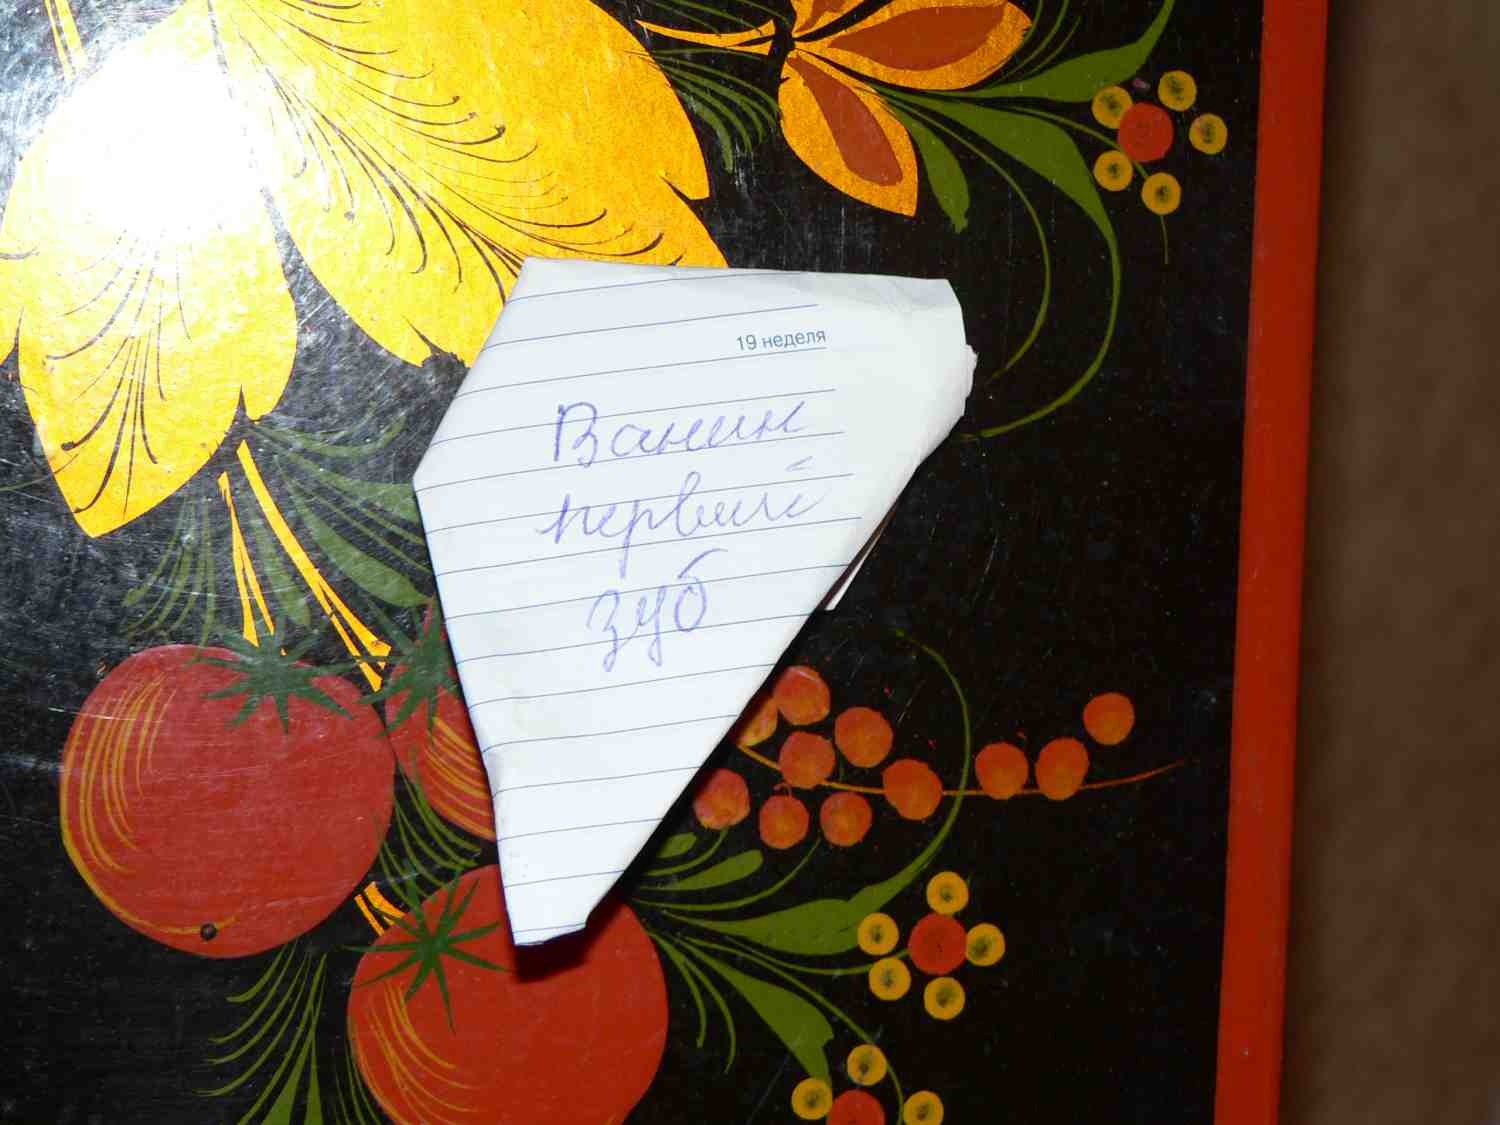 19 неделя
Ванин
первый
зуб